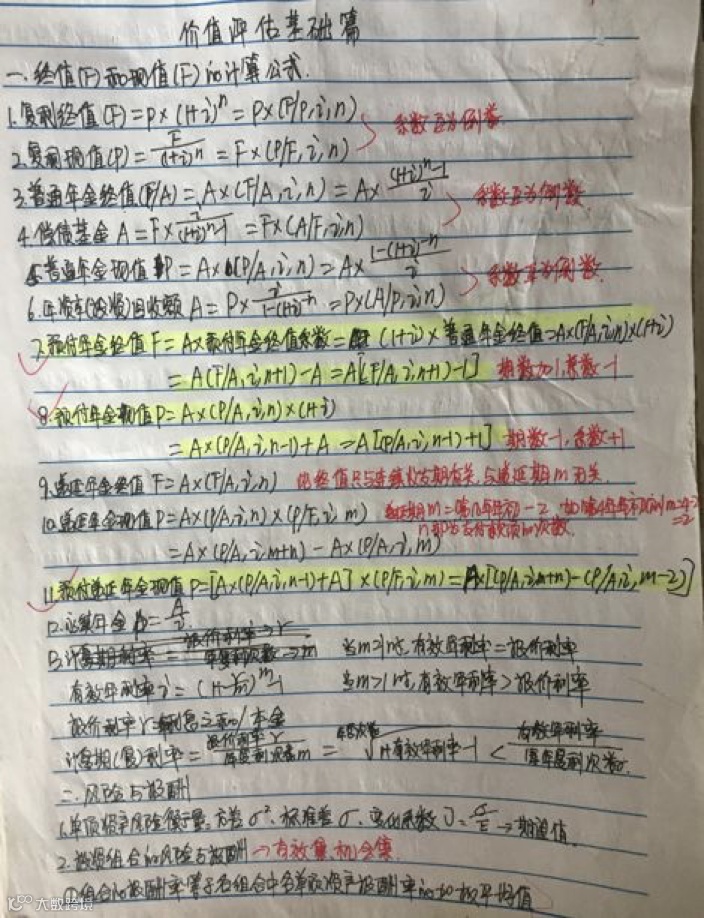 价值评估基础篇
一.终值(F)和现值(F)的计算公式.
1.复利终值(F)=P×(1+i)^n=P×(F/P,i,n)
2.复利现值(P)=F/(1+i)^n=F×(P/F,i,n) 系数互为倒数.
3.普通年金终值(F/A)=A×(F/A,i,n)=A×((1+i)^n-1)/i
4.偿债基金A=F×i/((1+i)^n-1)=F×(A/F,i,n) 系数互为倒数
5.普通年金现值P=A×(P/A,i,n)=A×(1-(1+i)^-n)/i
6.年资本(投资)回收额A=P×i/(1-(1+i)^-n)=P×(A/P,i,n) 系数互为倒数.
7.预付年金终值F=A×预付年金终值系数=(1+i)×普通年金终值=A×(F/A,i,n)×(1+i)
=A(F/A,i,n+1)-A=A[(F/A,i,n+1)-1] 期数加1,系数-1
8.预付年金现值P=A×(P/A,i,n)×(1+i)
=A×(P/A,i,n-1)+A=A[(P/A,i,n-1)+1] 期数-1,系数+1
9.递延年金终值F=A×(F/A,i,n) 终值只与连续收支期有关,与递延期m无关.
10.递延年金现值P=A×(P/A,i,n)×(P/F,i,m) 递延期m=第几年年初-2,如第4年年初则m=4-2=2
n即为支付款项的次数.
=A×(P/A,i,m+n)-A×(P/A,i,m)
11.预付递延年金现值P=[A×(P/A,i,n-1)+A]×(P/F,i,m)=A×[(P/A,i,m+n)-(P/A,i,m-2)]
12.永续年金P=A/i
13.计息期利率=报价利率→r/年复利次数→m 当m=1时,有效年利率=报价利率
有效年利率i=(1+r/m)^m-1 当m>1时,有效年利率>报价利率
报价利率r=利息之和/本金
计息期(股)利率=报价利率r/年复利次数m=1+有效年利率-1<有效年利率/每年复利次数
二.风险与报酬
1.单项资产风险衡量:方差σ²、标准差σ、变化系数=σ/E→期望值
2.投资组合的风险与报酬→有效集机会集.
①组合的报酬率等于各组合中各单项资产报酬率的加权平均值
大数跨境